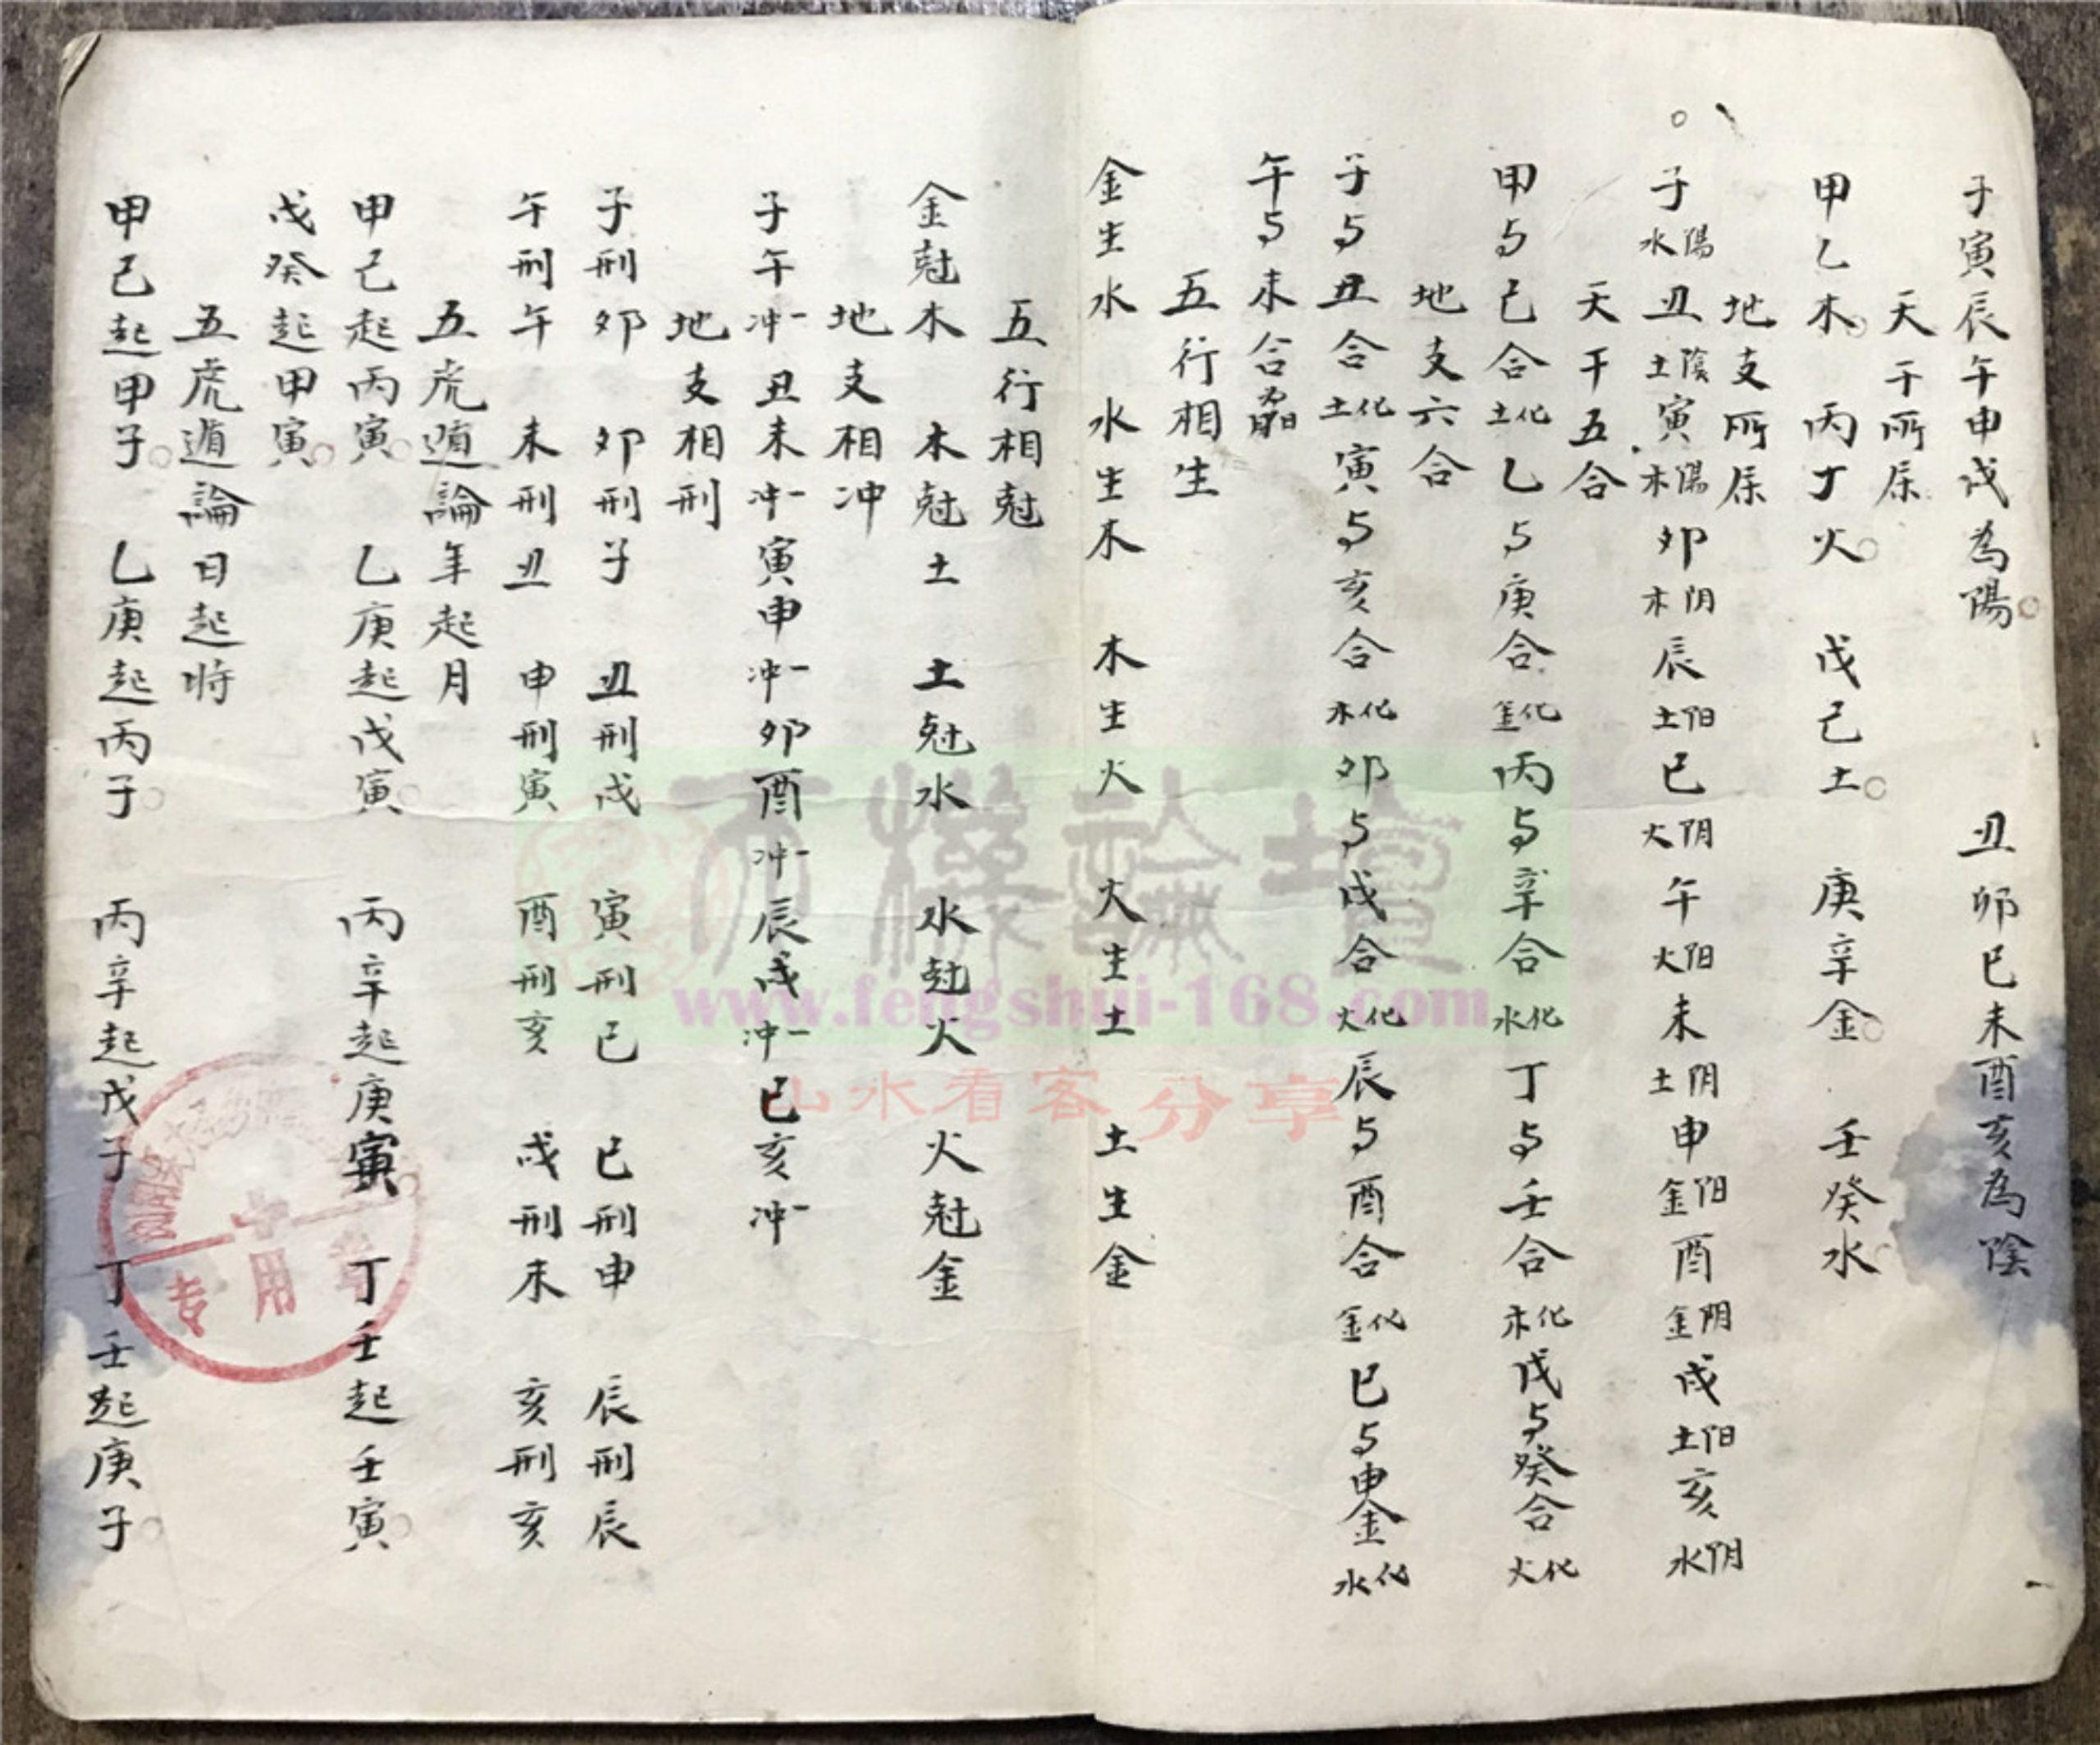 子寅辰午申戌為陽。丑卯巳未酉亥為陰
天干所屬
甲乙木。丙丁火。戊己土。庚辛金。壬癸水。
地支所屬
子陽水丑陰土寅陽木卯阴木辰阳土巳阴火午阳火未阴土申阳金酉阴金戌阳土亥阴水
天干五合
甲与己合化土乙与庚合化金丙与辛合化水丁与壬合化木戊与癸合化火
地支六合
子与丑合化土寅与亥合化木卯与戌合化火辰与酉合化金巳与申金化水
午与未合為
五行相生
金生水 水生木 木生火 火生土 土生金
五行相尅
金尅木 木尅土 土尅水 水尅火 火尅金
地支相冲
子午一冲丑未一冲寅申一冲卯酉一冲辰戌一冲巳亥一冲
地支相刑
子刑卯 卯刑子 丑刑戌 寅刑巳 巳刑申 辰刑辰
午刑午 未刑丑 申刑寅 酉刑亥 戌刑未 亥刑亥
五虎遁論年起月
甲己起丙寅。乙庚起戊寅。丙辛起庚寅。丁壬起壬寅。
戊癸起甲寅。
五虎遁論日起时
甲己起甲子。乙庚起丙子。丙辛起戊子 丁壬起庚子。
专用章
www.fengshui-168.com
山水看客分享